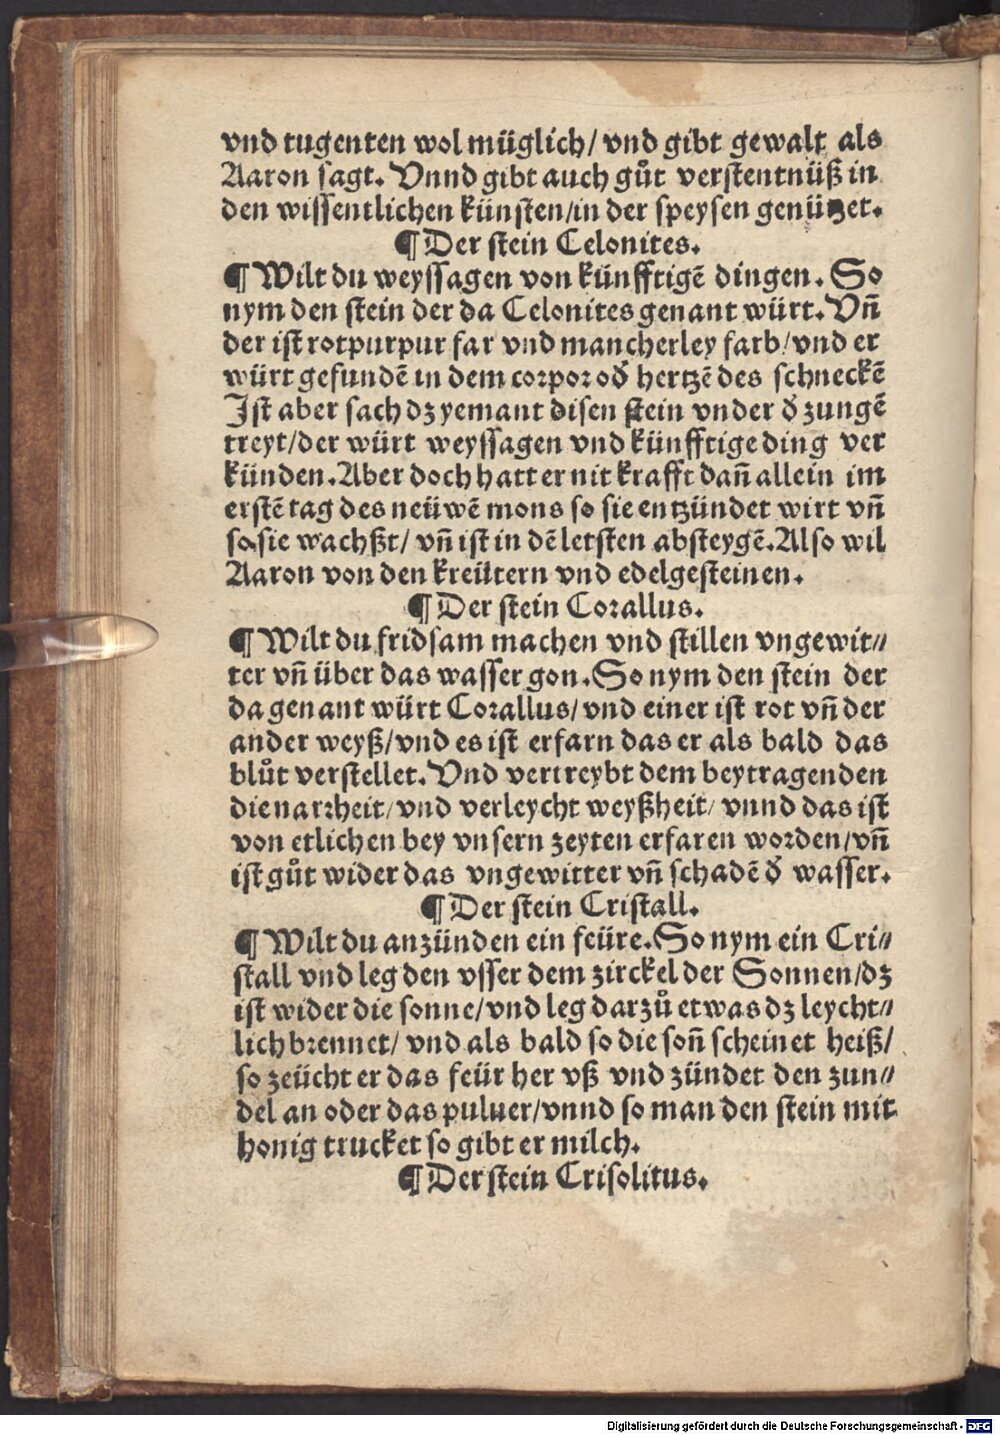 vnd tugenten wol müglich/ vnd gibt gewalt als
Aaron sagt. Vnnd gibt auch gůt verstentnüß in
den wissentlichen künsten/in der speysen genützet.
¶ Der stein Celonites.
¶ Wilt du weyssagen von künfftigē dingen. So
nym den stein der da Celonites genant würt. Vñ
der ist rotpurpur far vnd mancherley farb/vnd er
würt gefundē in dem corpor oď hertzē des schneckē
Ist aber sach dz yemant disen stein vnder ď zungē
treyt/der würt weyssagen vnd künfftige ding ver
künden. Aber doch hatt er nit krafft dañ allein im
erstē tag des neüwē mons so sie entzündet wirt vñ
so sie wachßt/ vñ ist in dē letsten absteygē. Also wil
Aaron von den kreütern vnd edelgesteinen.
¶ Der stein Corallus.
¶ Wilt du fridsam machen vnd stillen vngewit⸗
ter vñ über das wasser gon. So nym den stein der
da genant würt Corallus/ vnd einer ist rot vñ der
ander weyß/vnd es ist erfarn das er als bald das
blůt verstellet. Vnd vertreybt dem beytragenden
die narrheit/vnd verleycht weyßheit/ vnnd das ist
von etlichen bey vnsern zeyten erfaren worden/vñ
ist gůt wider das vngewitter vñ schadē ď wasser.
¶ Der stein Cristall.
¶ Wilt du anzünden ein feüre. So nym ein Cri⸗
stall vnd leg den vsser dem zirckel der Sonnen/dz
ist wider die sonne/vnd leg darzů etwas dz leycht⸗
lich brennet/ vnd als bald so die soñ scheinet heiß/
so zeücht er das feür her vß vnd zündet den zun⸗
del an oder das puluer/vnnd so man den stein mit
honig trucket so gibt er milch.
¶ Der stein Crisolitus.
Digitalisierung gefördert durch die Deutsche Forschungsgemeinschaft - DFG